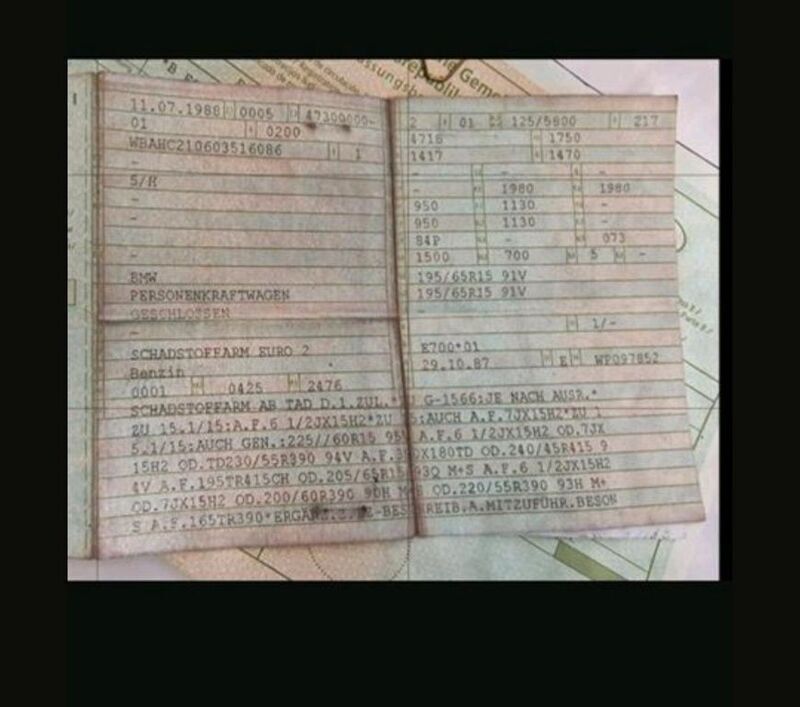 11.07.1988 0005 47300000-
01 0200
WBAHC210603516086 1
-
5/H
-
-
-
-
BMW
PERSONENKRAFTWAGEN
GESCHLOSSEN
-
SCHADSTOFFARM EURO 2
Benzin
0001 0425 2476
2 01 125/5800 217
4718 1750
1417 1470
- - -
- 1980 1980
950 1130 -
950 1130 -
84P - 073
1500 700 5 -
195/65R15 91V
195/65R15 91V
-
1/-
E700*01
29.10.87 E WP097852
SCHADSTOFFARM AB TAD D.1.ZUL.* G-1566:JE NACH AUSR.*
ZU 15.1/15:A.F.6 1/2JX15H2*ZU 15:AUCH A.F.7JX15H2*ZU 1
5.1/15:AUCH GEN.:225//60R15 95V A.F.6 1/2JX15H2 OD.7JX
15H2 OD.TD230/55R390 94V A.F. X180TD OD.240/45R415 9
4V A.F.195TR415CH OD.205/65R15 93Q M+S A.F.6 1/2JX15H2
OD.7JX15H2 OD.200/60R390 90H M+S OD.220/55R390 93H M+
S A.F.165TR390* MITZUFÜHR.BESON
Gemei